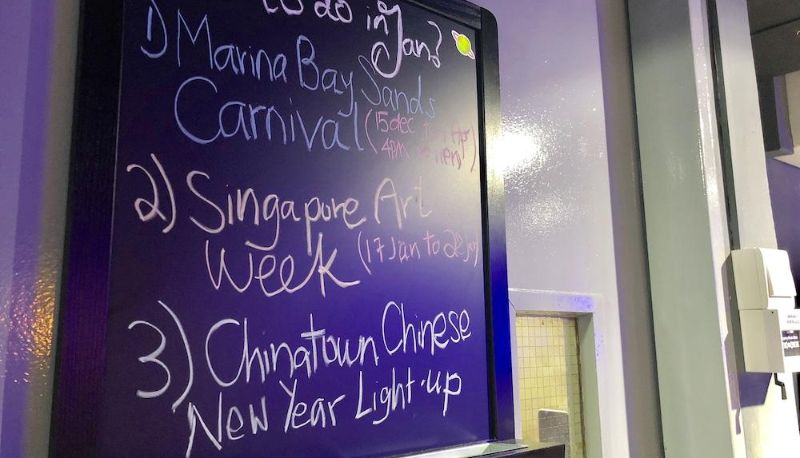 to do in Jan?
1) Marina Bay Sands
Carnival (15 dec
4pm
2) Singapore Art
Week (17 Jan to 28 Jan)
3) Chinatown Chinese
New Year Light-up